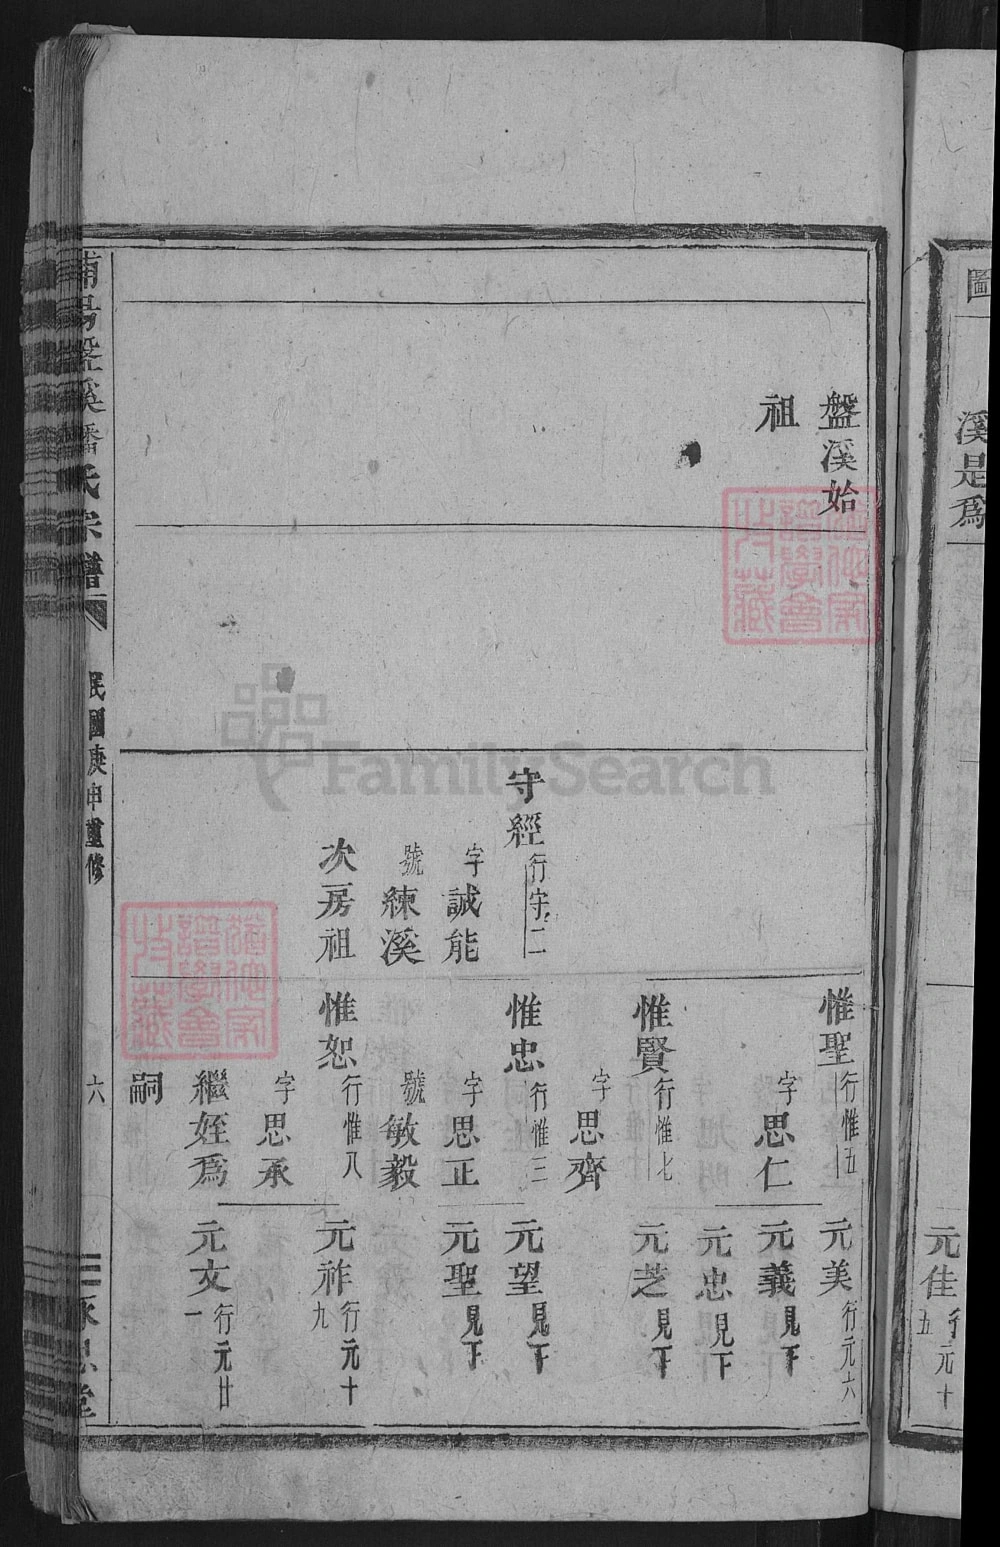 圖
溪是爲
元佳行元十五
盤溪始
祖
守經行守二
字誠能
號練溪
次房祖
惟聖行惟五
字思仁
惟賢行惟七
字思齊
惟忠行惟三
字思正
號敏毅
惟恕行惟八
字思承
繼姪爲
嗣
元美行元六
元義見下
元忠見下
元芝見下
元望見下
元聖見下
元祚行元十九
元文行元廿一
浦陽盤溪潘氏宗譜
民國庚申重修
六
承思堂
FamilySearch